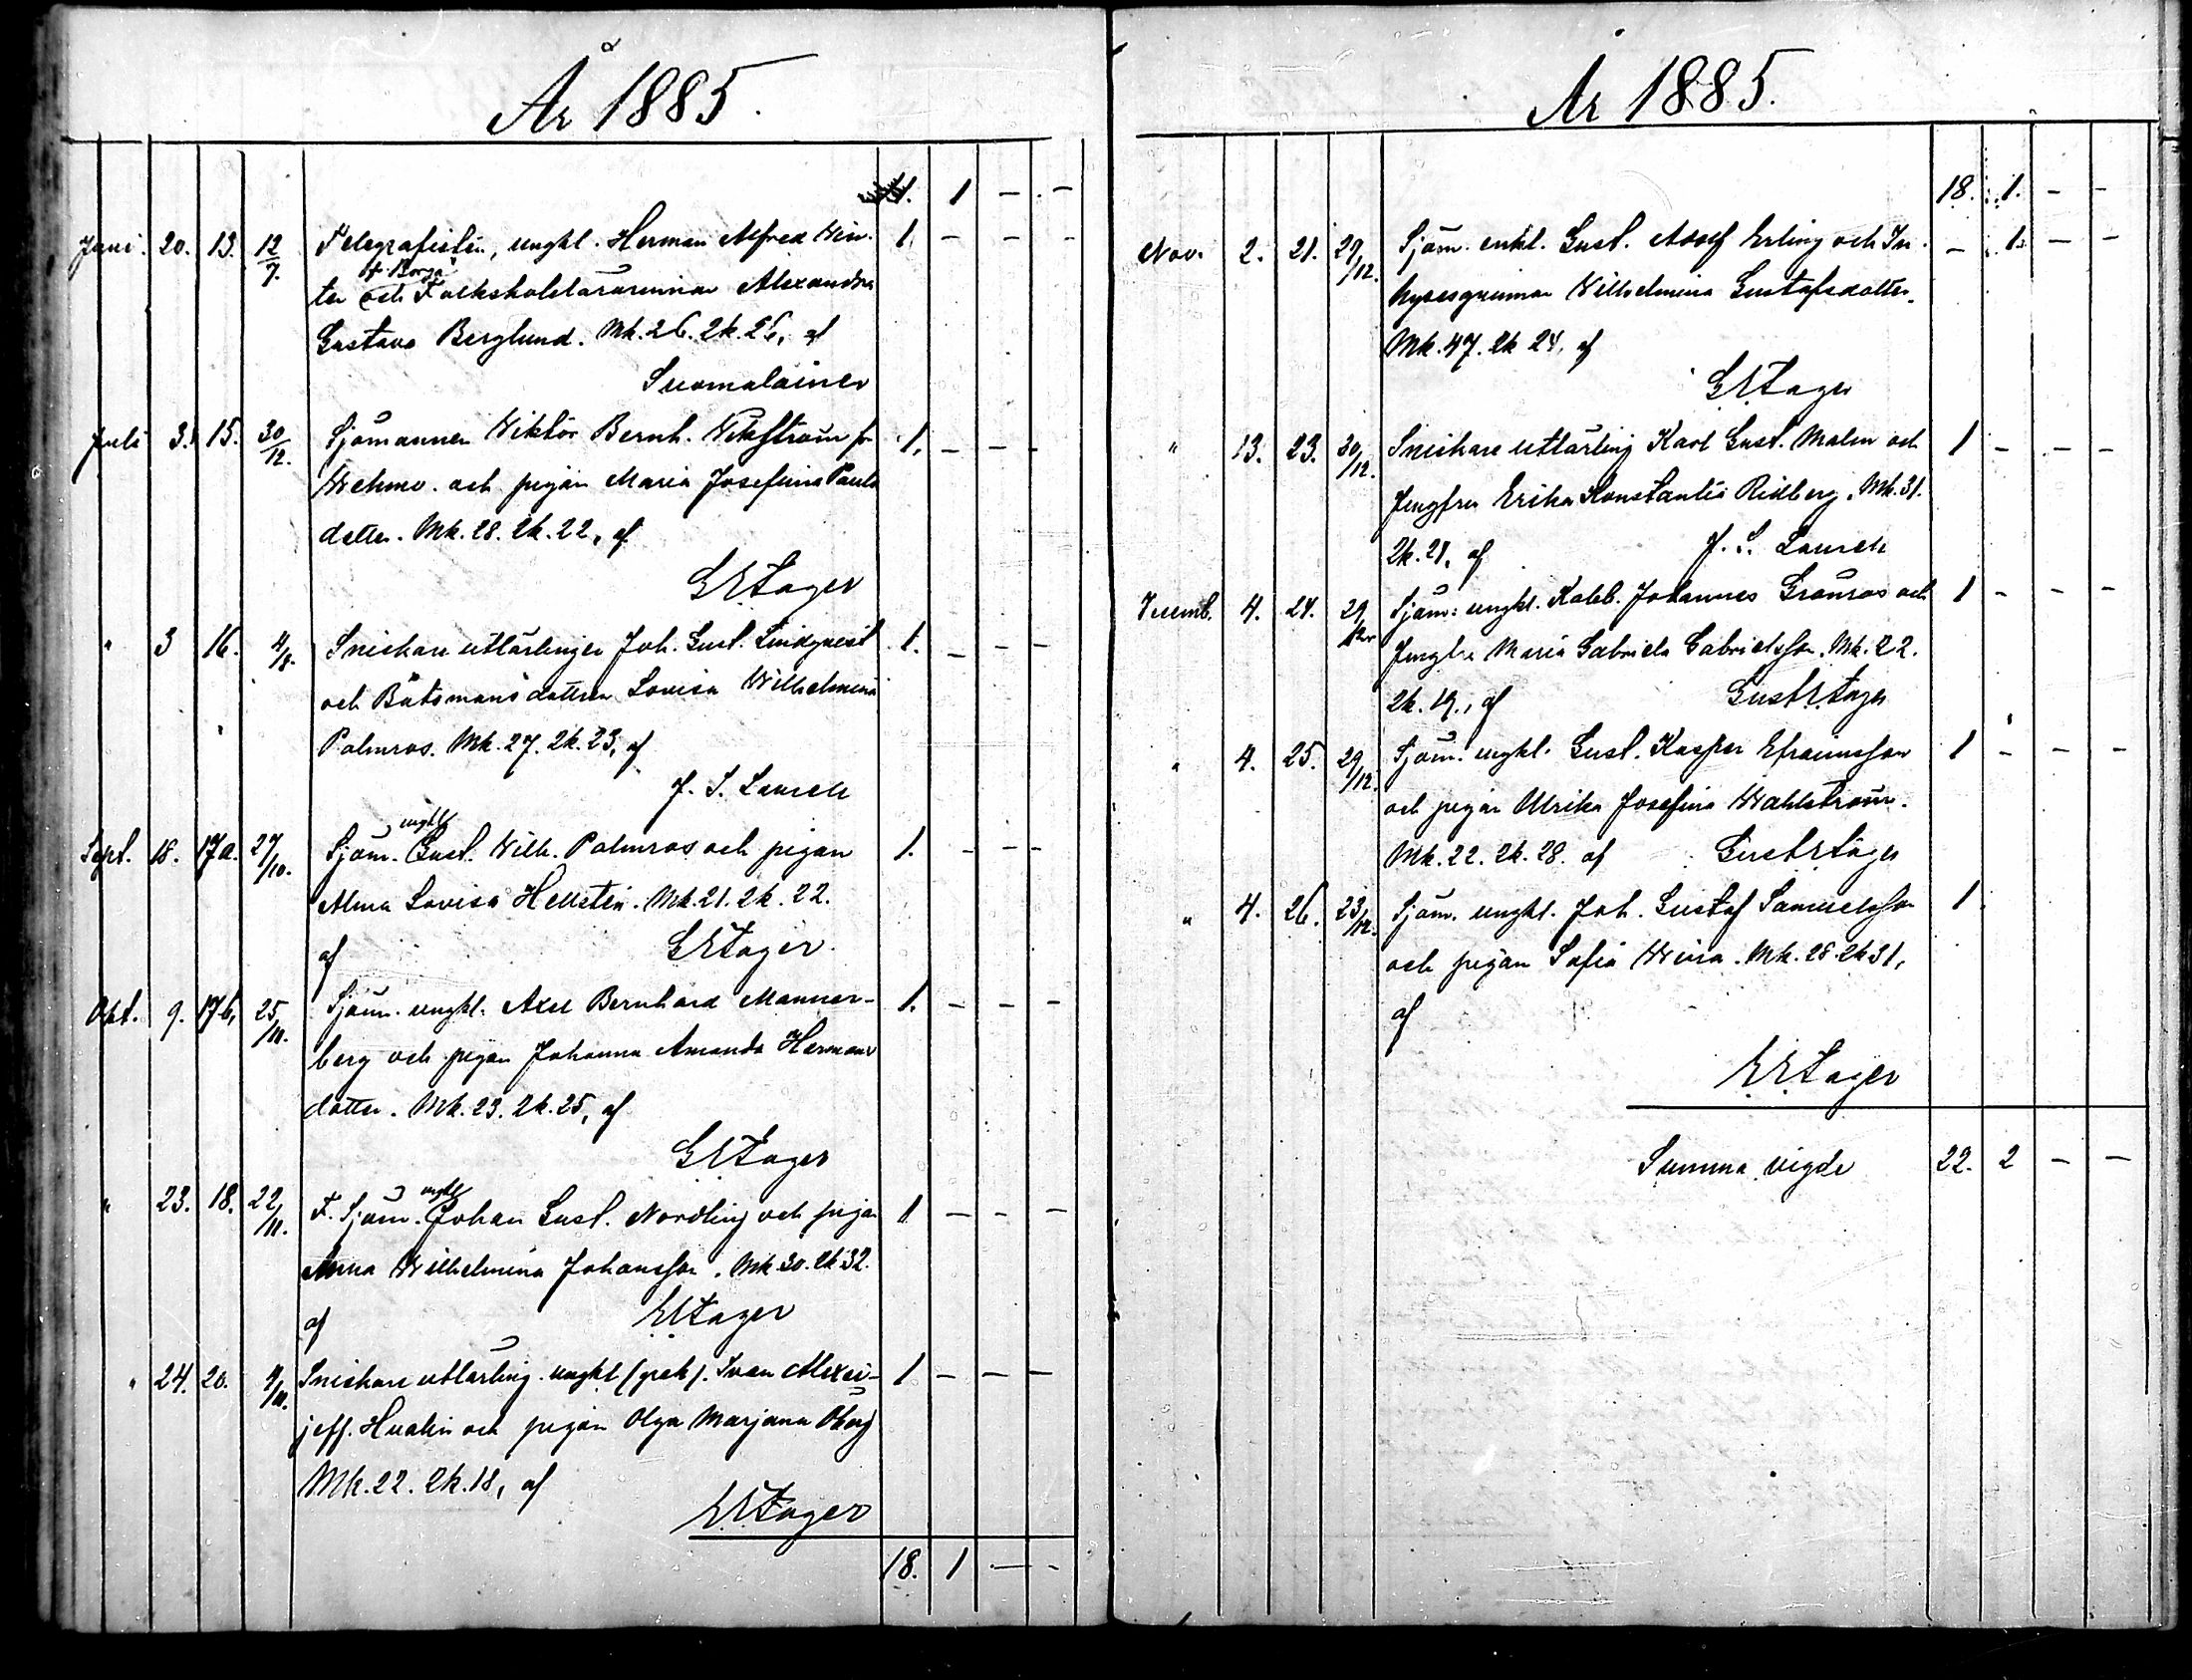 År 1885.
1. 1 — —
Juni. 20. 13. 12/7. Telegrafisten, ungkl. Herman Alfred Win- 1 — — —
fr. Borgå
ter och Folkskolelärarinnan Alexandra
Gustava Berglund. Mk. 26. Qk. 26, af
Suomalainen
Juli 3. 15. 30/12. Sjömannen Viktor Bernh. Vikström fr 1. — — -
Wehmo och pigan Maria Josefina Pauls
dotter. Mk. 28. Qk. 22, af
GEStager
" 3 16. 4/8. Snickare utlärlingen Joh. Gust. Lindqvist 1. — — —
och Båtsmansdottren Lovisa Wilhelmina
Palmros. Mk. 27. Qk. 23, af
J. S. Laurell
ungkl
Sept. 18. 17a. 27/10. Sjöm. Gust. Wilh. Palmros och pigan 1. - — —
Alma Lovisa Hellstén. Mk. 21. Qk. 22.
af GEStager.
Okt. 9. 17b, 25/11. Sjöm. ungkl. Axel Bernhard Manner- 1. — — —
berg och pigan Johanna Amanda Hermans
dotter. Mk. 23. Qk. 25, af
GEStager
ungkl
" 23. 18. 22/11. F. Sjöm. Johan Gust. Nordling och pigan 1 — — —
Anna Wilhelmina Johansson. Mk. 30. Qk 32.
af GEStager
" 24. 20. 9/11. Snickare utlärling. ungkl (grek). Ivan Alexei- 1 — — —
jeff. Hvalin och pigan Olga Marjana Öberg
Mk. 22. Qk. 18, af
GEStager
18. 1 — -
År 1885.
18. 1. — —
Nov. 2. 21. 29/12. Sjöm. enkl. Gust. Adolf Erling och In- — 1. — —
hysesqvinnan Wilhelmina Gustafsdotter.
Mk. 47. Qk 24, af
GEStager
" 13. 23. 30/12. Snickare utlärling Karl Gust. Malin och 1 — — —
Jungfru Erika Konstantia Ridberg. Mk. 31.
Qk. 21, af J. S. Laurell
Decemb. 4. 24. 29/12 Sjöm: ungkl. Kaleb. Johannes Granros och 1 - — —
Jungfru Maria Gabriela Gabrielsson. Mk. 22.
Qk. 19., af GustEStager
" 4. 25. 29/12. Sjöm. ungkl. Gust. Kasper Efraimsson 1 - — —
och pigan Ulrika Josefina Wahlström.
Mk. 22. Qk. 28. af GustEStager
" 4. 26. 23/12. Sjöm. ungkl. Joh. Gustaf Samuelsson 1
och pigan Sofia Weira. Mk. 28. Qk 31,
af
GEStager
Summa vigde 22. 2 — —